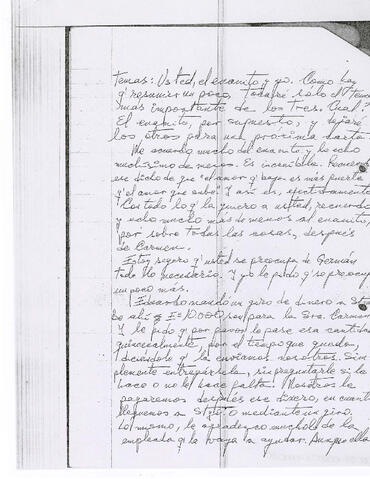 temas: Usted, el enanito y yo. Como hay
q' resumir un poco, tocaré sólo el tema
más importante de los tres. Cuál?
El enanito, por supuesto, y dejaré
los otros para una próxima carta.
Me acuerdo mucho del enanito y lo echo
muchísimo de menos. Es increíble. Recuerdo
ese dicho de que "el amor q' baja es más fuerte
q' el amor que sube". Y así es, efectivamente.
Con todo lo q' la quiero a usted, recuerdo
y echo mucho más de menos al enanito,
por sobre todas las cosas, después
de Carmen.
Estoy seguro q' usted se preocupa de Germán
todo lo necesario. Y yo le pido q' se preocupe
un poco más.
Eduardo mandó un giro de dinero a Stgo.
De ahí E=10000 son para la Sra. Carmen
Y le pido q' por favor le pase esa cantidad
quincenalmente, por el tiempo que puedan,
diciéndole q' la enviamos nosotros. Sim
plemente entregársela, sin preguntarle si le
hace o no le hace falta. Nosotros le
pagaremos después ese dinero, en cuanto
lleguemos a Stgo. o mediante un giro.
Lo mismo, le agradezco mucho lo de la
empleada q' la vaya a ayudar. Aunque ella